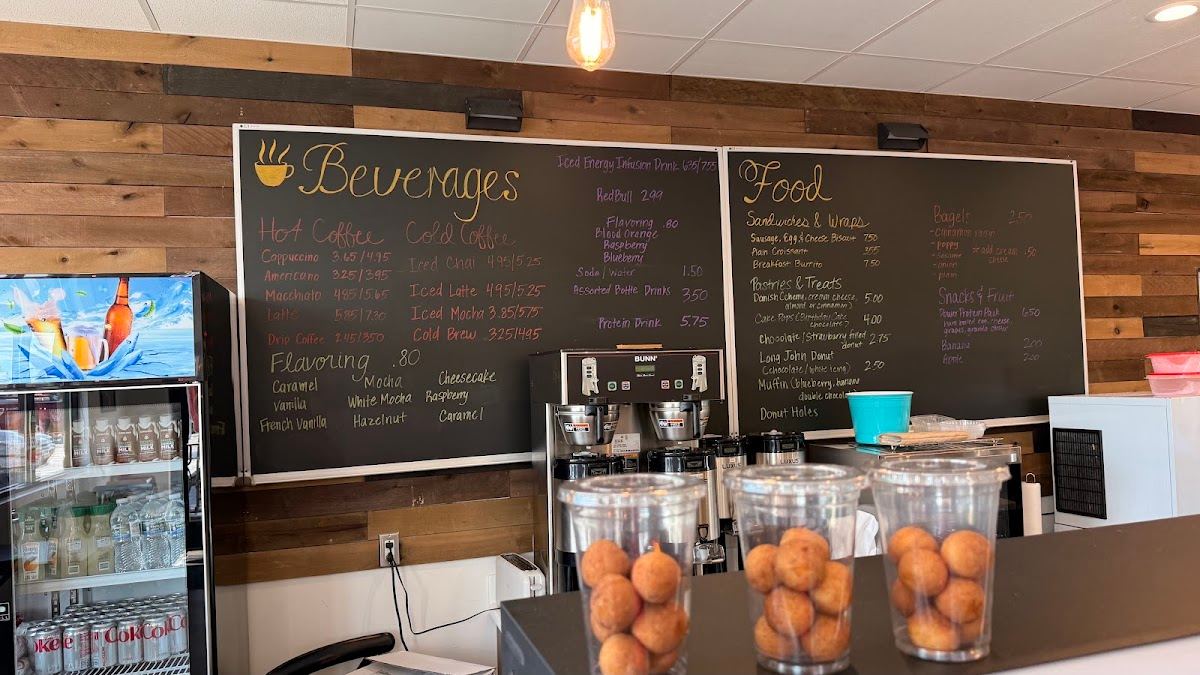 Beverages
Hot Coffee
Cappuccino 3.65/4.95
Americano 3.25/3.95
Macchiato 4.85/5.65
Latte 5.85/7.30
Drip Coffee 2.45/3.50
Cold Coffee
Iced Chai 4.95/5.25
Iced Latte 4.95/5.25
Iced Mocha 3.85/5.75
Cold Brew 3.25/4.95
Flavoring .80
Caramel Mocha Cheesecake
Vanilla White Mocha Raspberry
French Vanilla Hazelnut Caramel
Iced Energy Infusion Drink 6.35/7.55
RedBull 2.99
Flavoring .80
Blood Orange
Raspberry
Blueberry
Soda/Water 1.50
Assorted Bottle Drinks 3.50
Protein Drink 5.75
Food
Sandwiches & Wraps
Sausage, Egg & Cheese Biscuit 7.50
Plain Croissant 3.55
Breakfast Burrito 7.50
Pastries & Treats
Danish (Cheme, cream cheese, 5.00
almond or cinnamon)
Cake Pops (Birthday Cake 4.00
chocolate)
Chocolate/Strawberry filled
donut 2.75
Long John Donut
(chocolate/white icing) 2.50
Muffin (blueberry, banana
double chocolate
Donut Holes
Bagels 2.50
- Cinnamon raisin
- poppy
- sesame
- onion
- plain
* add cream .50
cheese
Snacks & Fruit
Power Protein Pack 6.50
hard boiled egg, cheese,
grapes, granola
Banana 2.00
Apple 2.00
BUNN
LUXUS
MILK
Coke